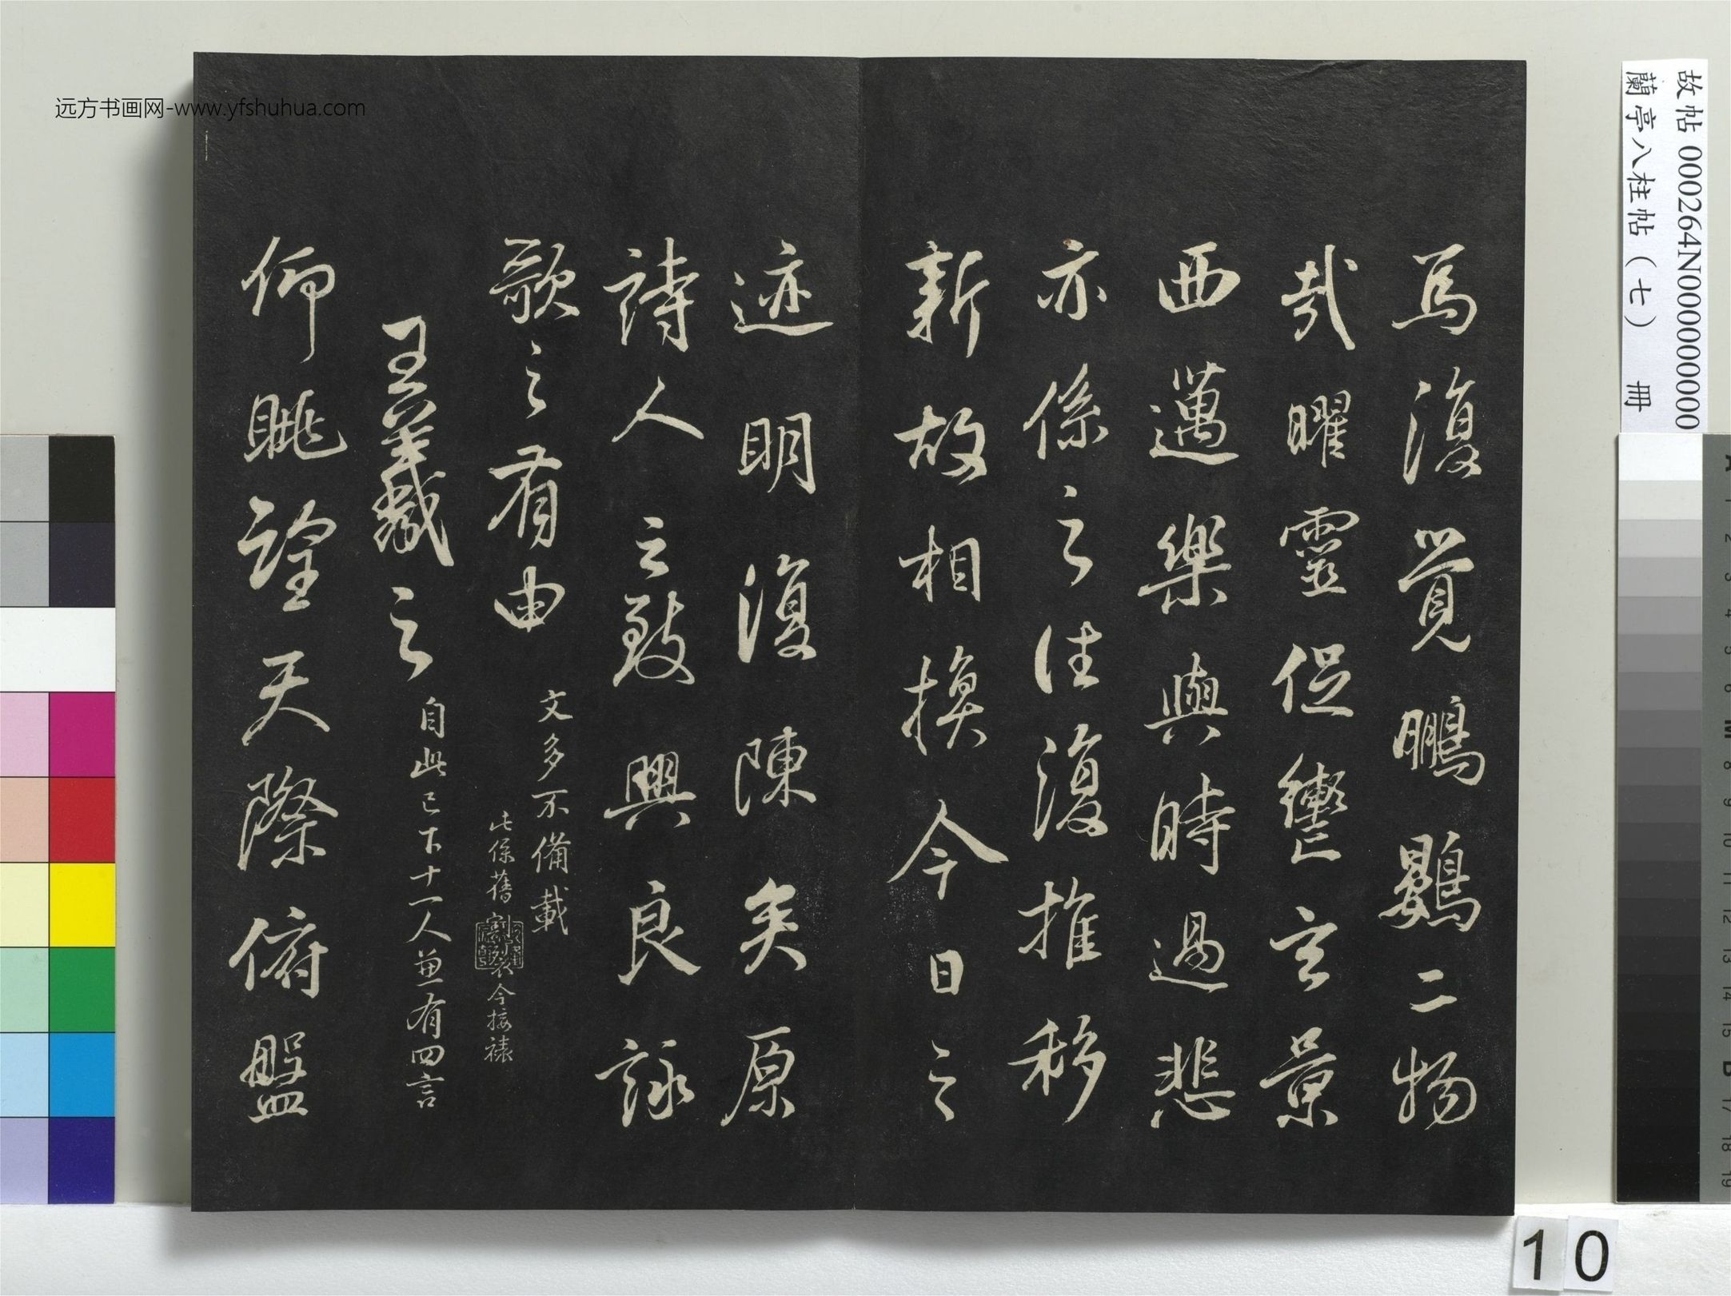 焉復覺鵬鷃二物
哉曜靈促轡玄景
西邁樂與時過悲
亦係之往復推移
新故相換今日之
迹明復陳矣原
詩人之致興良詠
歌之有由
文多不備載
王羲之
自此已下十一人兼有四言
仰眺望天際俯盤
故帖 000264N000000000
蘭亭八柱帖（七） 冊
远方书画网-www.yfshuhua.com
10